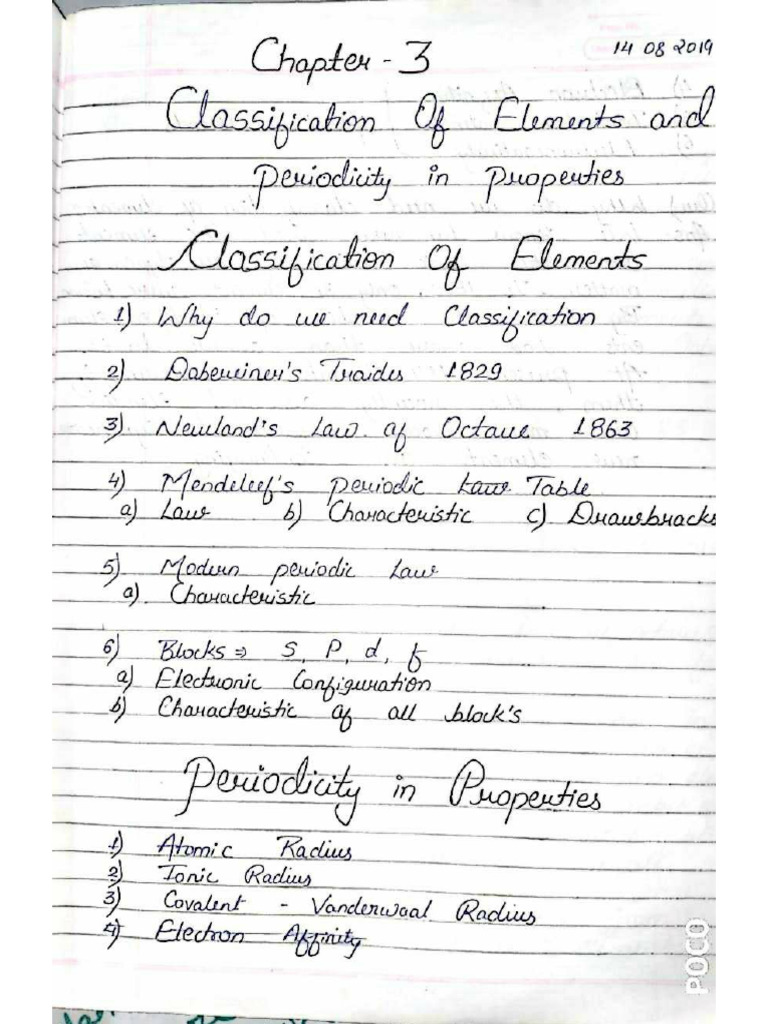 14 08 2019
Chapter - 3
Classification Of Elements and
Periodicity in Properties
Classification Of Elements
1) Why do we need Classification
2) Dabereiner's Traides 1829
3) Newland's Law of Octave 1863
4) Mendeleef's Periodic Law Table
a) Law b) Characteristic c) Drawbracks
5) Modern periodic Law
a) Characteristic
6) Blocks ⇒ S, P, d, f
a) Electronic Configuration
b) Characteristic of all block's
Periodicity in Properties
1) Atomic Radius
2) Ionic Radius
3) Covalent - Vanderwaal Radius
4) Electron Affinity
POCO